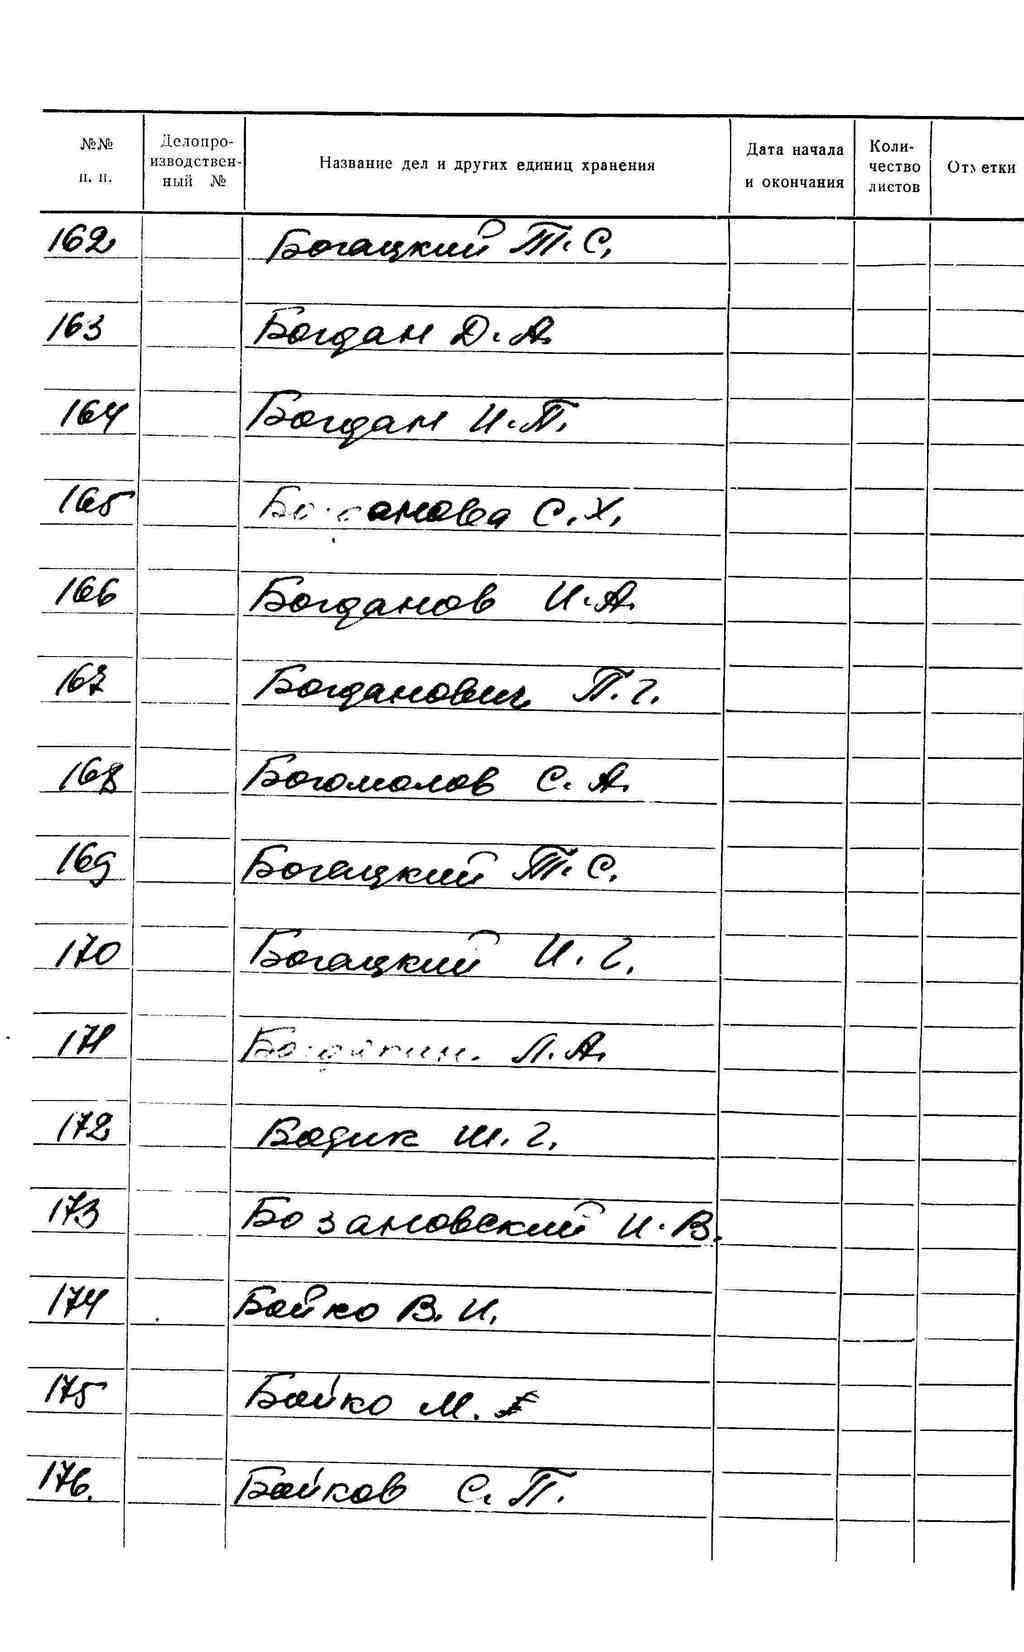 №№ п. п. Делопроизводственный № Название дел и других единиц хранения Дата начала и окончания Количество листов Отметки
162 Богацкий Т. С.
163 Богдан Д. А.
164 Богдан И. П.
165 Богданова С. Х.
166 Богданов И. А.
167 Богданович П. Г.
168 Богомолов С. А.
169 Богацкий Т. С.
170 Богацкий И. Г.
171 Л. А.
172 Бодик Ш. Г.
173 Бозановский И. В.
174 Бойко В. И.
175 Бойко М.
176. Бойков С. П.